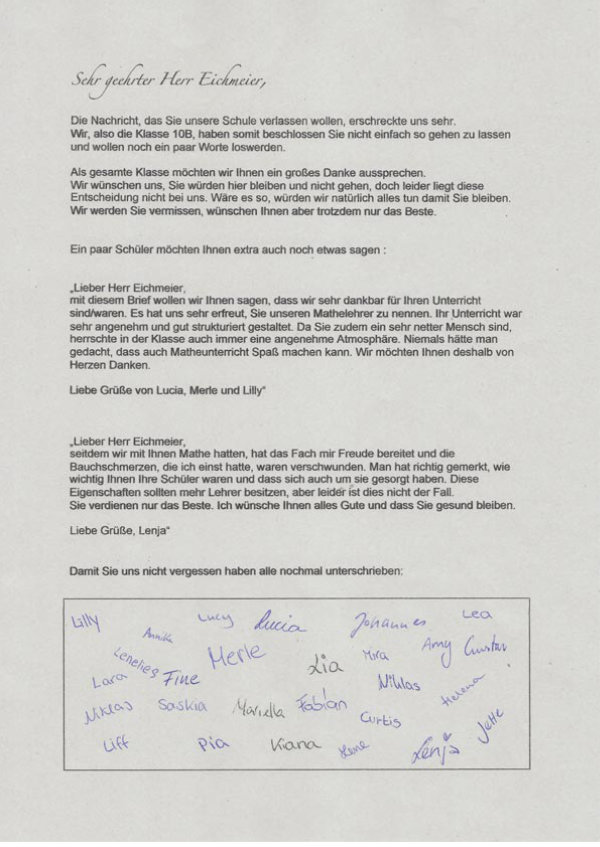 Sehr geehrter Herr Eichmeier,
Die Nachricht, das Sie unsere Schule verlassen wollen, erschreckte uns sehr.
Wir, also die Klasse 10B, haben somit beschlossen Sie nicht einfach so gehen zu lassen
und wollen noch ein paar Worte loswerden.
Als gesamte Klasse möchten wir Ihnen ein großes Danke aussprechen.
Wir wünschen uns, Sie würden hier bleiben und nicht gehen, doch leider liegt diese
Entscheidung nicht bei uns. Wäre es so, würden wir natürlich alles tun damit Sie bleiben.
Wir werden Sie vermissen, wünschen Ihnen aber trotzdem nur das Beste.
Ein paar Schüler möchten Ihnen extra auch noch etwas sagen :
„Lieber Herr Eichmeier,
mit diesem Brief wollen wir Ihnen sagen, dass wir sehr dankbar für Ihren Unterricht
sind/waren. Es hat uns sehr erfreut, Sie unseren Mathelehrer zu nennen. Ihr Unterricht war
sehr angenehm und gut strukturiert gestaltet. Da Sie zudem ein sehr netter Mensch sind,
herrschte in der Klasse auch immer eine angenehme Atmosphäre. Niemals hätte man
gedacht, dass auch Matheunterricht Spaß machen kann. Wir möchten Ihnen deshalb von
Herzen Danken.
Liebe Grüße von Lucia, Merle und Lilly“
„Lieber Herr Eichmeier,
seitdem wir mit Ihnen Mathe hatten, hat das Fach mir Freude bereitet und die
Bauchschmerzen, die ich einst hatte, waren verschwunden. Man hat richtig gemerkt, wie
wichtig Ihnen Ihre Schüler waren und dass sich auch um sie gesorgt haben. Diese
Eigenschaften sollten mehr Lehrer besitzen, aber leider ist dies nicht der Fall.
Sie verdienen nur das Beste. Ich wünsche Ihnen alles Gute und dass Sie gesund bleiben.
Liebe Grüße, Lenja“
Damit Sie uns nicht vergessen haben alle nochmal unterschrieben:
Lilly Annika Lucy Lucia Johannes Lea
Merle Lia Mira Amy
Lara Fine Niklas Helena
Niklas Saskia Mariella Fabian Curtis Jette
Liff Pia Kiana Lene Lenja